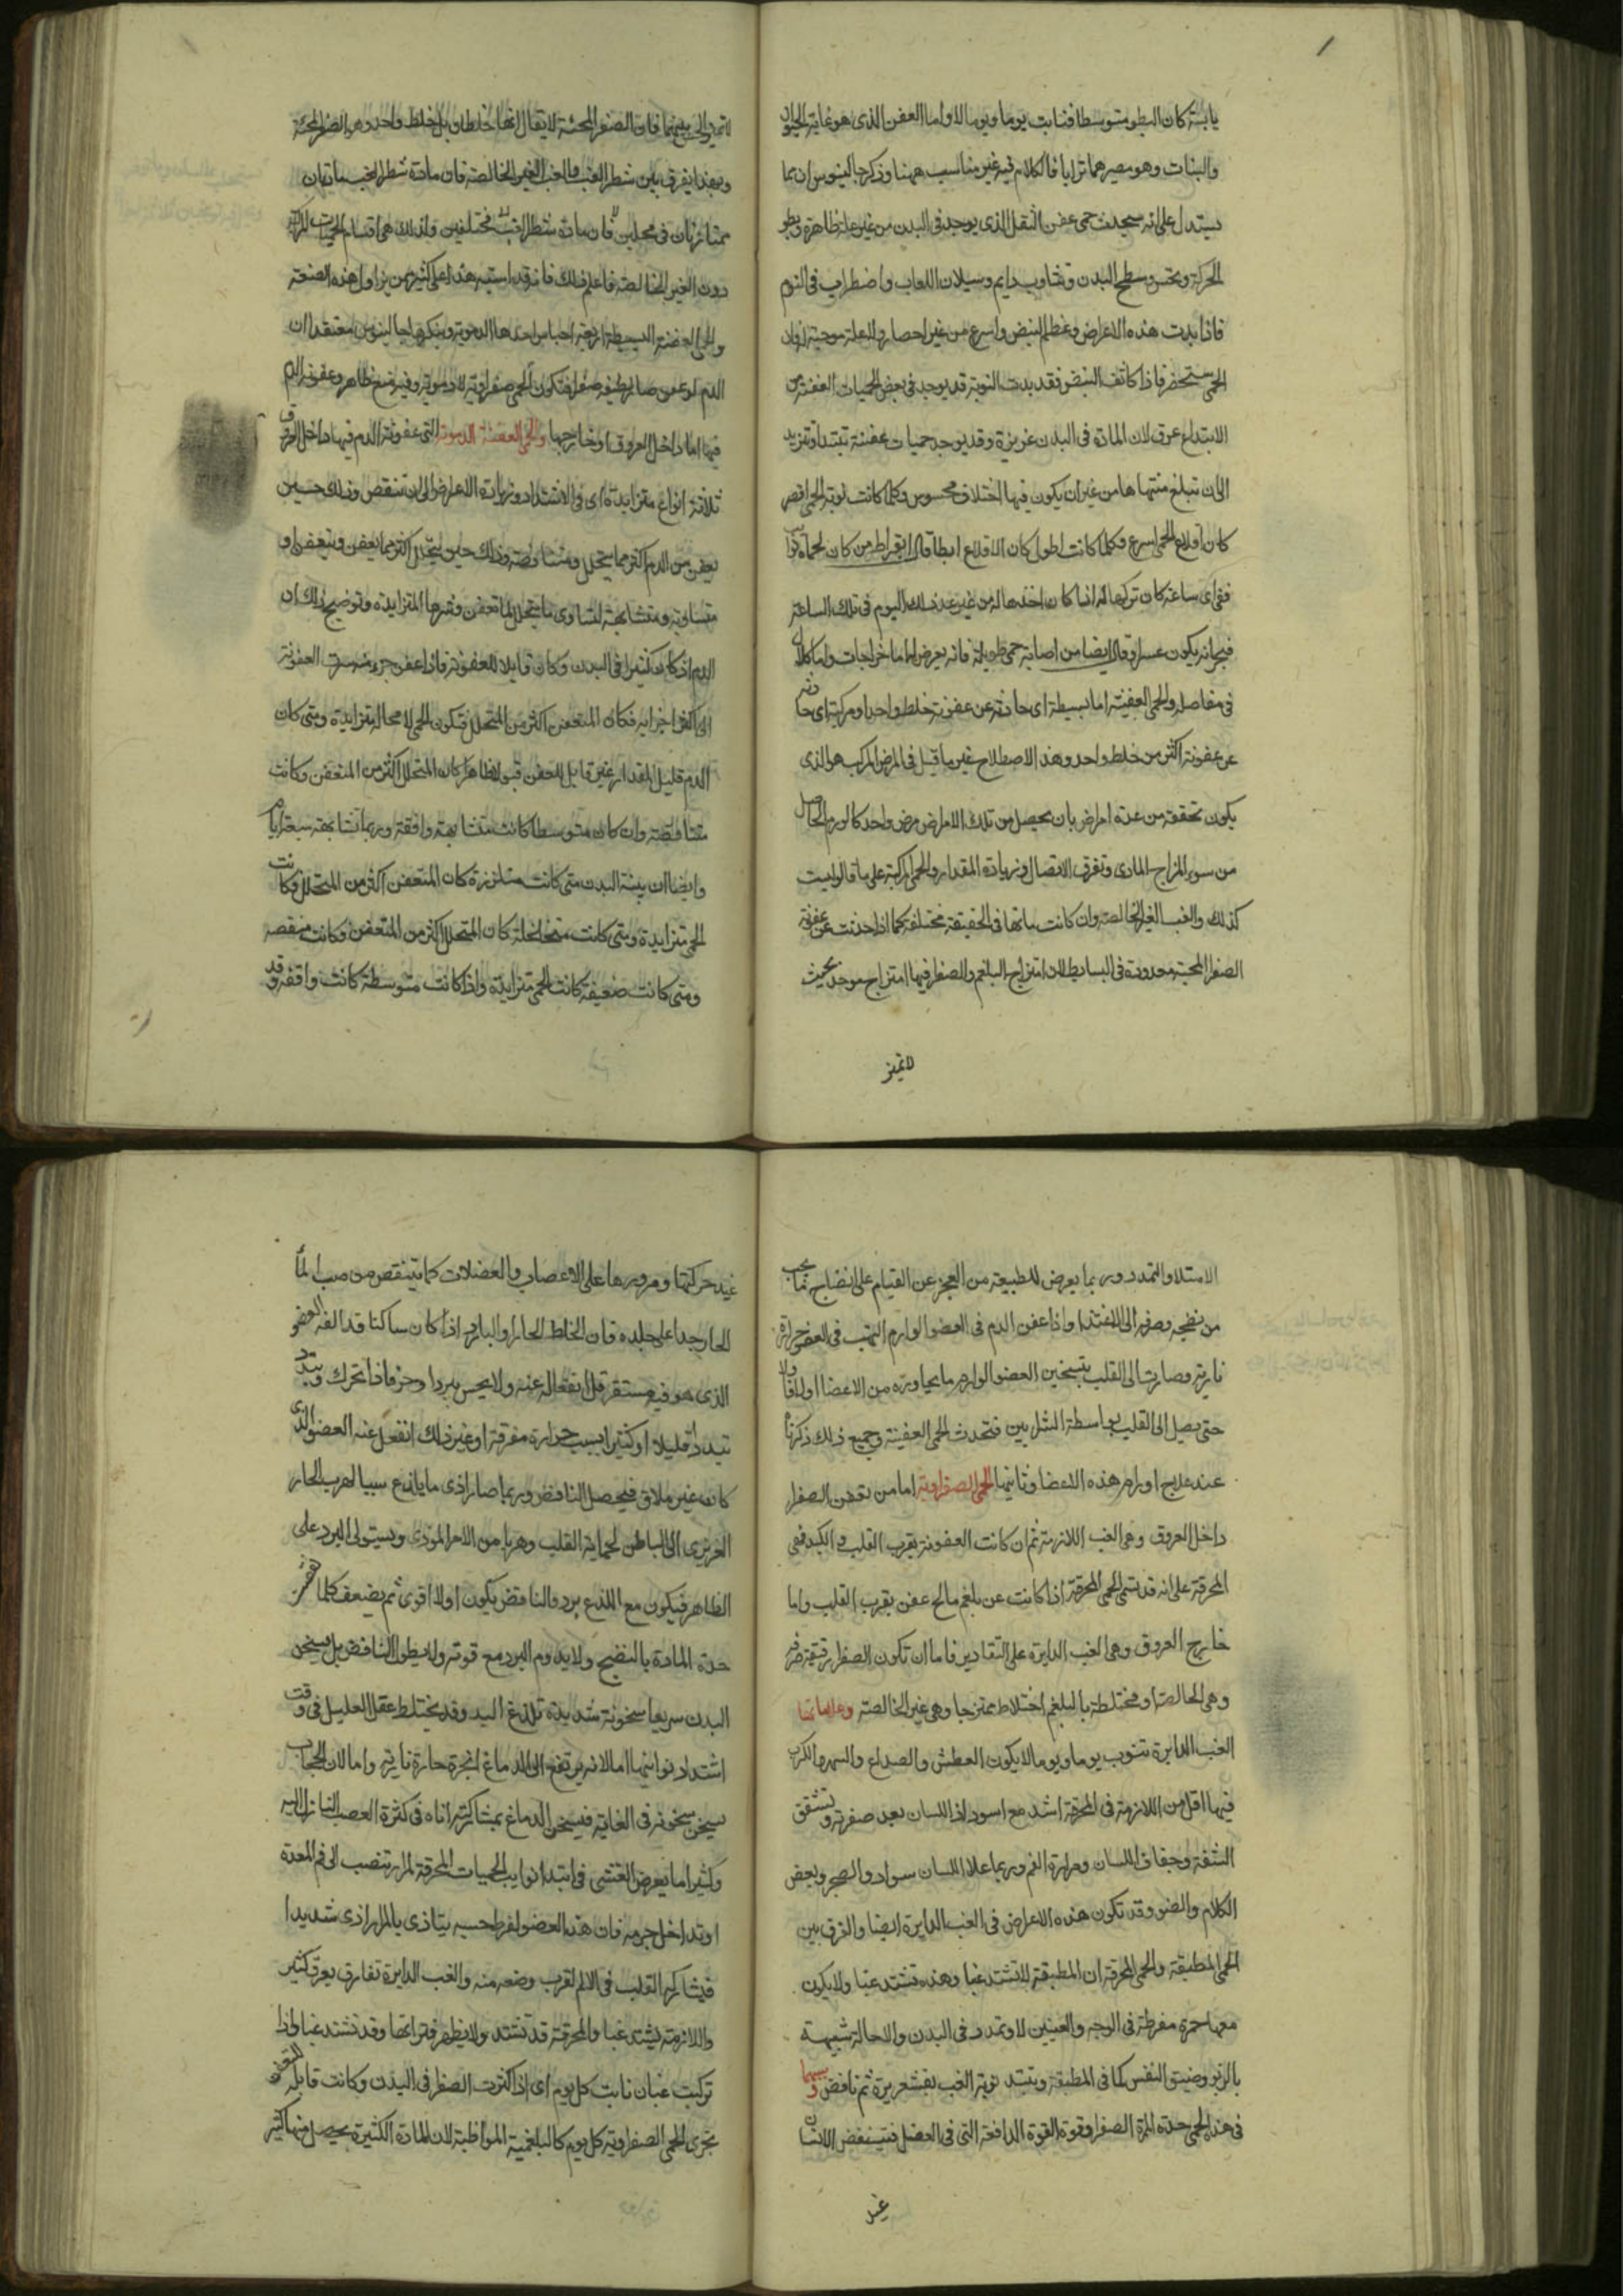 يابسة كان البطو متوسطا فنابت يوما ويوما لا واما العفن الذى هو غاية الحيوان
والنبات وهو مصيرهما ترابا فالكلام فيه غير مناسب ههنا وذكر جالينوس ان مما
يستدل على انه سيحدث حمى عفن الثقل الذى يوجد فى البدن من غير علة ظاهرة وبطو
الحركة وتخسن سطح البدن وتثاوب دايم وسيلان اللعاب واضطراب فى النوم
فاذا بدت هذه الاعراض وعظم النبض واسرع من غير احصار وللعلة موجبة
الحمى ستحضر فاذا كاثف النبض فقد بدت النوبة قد يوجد فى بعض الحميات العفنة من
الابتداء عرق لان المادة فى البدن غزيرة وقد يوجد حميات عفنية تبتدا وتزيد
الى ان تبلغ منتهاها من غير ان يكون فيها اختلاف محسوس وكلما كانت نوبة الحمى اقصر
كان اقلاع الحمى اسرع وكلما كانت اطول كان الاقلاع ابطا قال ابقراط من كان لحماه نوايب
ففى اى ساعة كان تركها له اذا كان اخذها له من غد ذلك اليوم فى تلك الساعة
فبحرانه يكون عسرا وقال ايضا من اصابته حمى طويلة فانه يعرض له اما خراجات واما كلال
فى مفاصله والحمى العفنية اما بسيطة اى حادثة عن عفونة خلط واحد او مركبة اى حادثة
عن عفونة اكثر من خلط واحد وهذا الاصطلاح غير ما قيل فى المرض المركب هو الذى
يكون تحققه من عدة امراض بان يحصل من تلك الامراض مرض واحد كالورم الحاصل
من سوء المزاج المادى وتفرق الاتصال وزيادة المقدار والحمى المركبة على ما قالوا ليست
كذلك والغب الغير الخالصة وان كانت مادتها فى الحقيقة مختلفة كما اذا حدثت عن عفونة
الصفرا المحية معدودة فى البسايط لان امتزاج البلغم والصفرا فيها امتزاج موحد بحيث
لا تميز
لا تميز الحس بينهما فان الصفرا المحية لا يقال انها خلطان بل خلط واحد وهو الصفرا المحية
وبهذا يفرق بين شطر الغب والغب الغير الخالصة فان مادة شطر الغب مادتان
ممتازتان فى محلين فان مادة شطر الغب مختلفين ولذلك هى اقسام الحميات المركبة
دون الغير الخالصة فاعلم ذلك فانه قد استبه هذا على كثير ممن يزاول هذه الصنعة
والحمى العفنية البسيطة اربعة اجناس احدها الدموية وينكرها جالينوس معتقدا ان
الدم لو عفن صار لطيفه صفرا فتكون الحمى صفراوية لا دموية وفيه منع ظاهر وعفونة الدم
فيها اما داخل العروق او خارجها والحمى العفنية الدموية التى عفونة الدم فيها داخل العروق
ثلاثة انواع متزايدة اى فى الاشتداد وزيادة الاعراض الى ان تنقص وذلك حين
يعفن من الدم اكثر مما يتحلل ومتناقصة وذلك حين يتحلل اكثر مما يعفن ويتعفن او
متساوية ومتشابهة لتساوى ما يتحلل لما تعفن وشرها المتزايدة وتوضيح ذلك ان
الدم اذا كان كثيرا فى البدن وكان قابلا للعفونة فاذا عفن جزء سرت العفونة
الى اكثر اجزايه فكان المتعفن اكثر من المتحلل فتكون الحمى لا محالة متزايدة ومتى كان
الدم قليل المقدار غير قابل للعفن قبولا ظاهرا كان المتحلل اكثر من المتعفن وكانت
متناقصة وان كان متوسطا كانت متشابهة واقفة وربما تشابهت سبعة ايام
وايضا ان بنية البدن متى كانت متلززة كان المتعفن اكثر من المتحلل وكانت
الحمى متزايدة ومتى كانت متخلخلة كان المتحلل اكثر من المتعفن وكانت منقصة
ومتى كانت ضعيفة كانت الحمى متزايدة واذا كانت متوسطة كانت واقفة وقد
الامتلا والتمدد وربما يعرض للطبيعة من العجز عن القيام على انضاج ما يجب
من نضجه وصرفه الى الاغتذا واذا عفن الدم فى العضو الوارم التهب فى العضو حرارة
نارية وصارت الى القلب بتسخين العضو الوارم ما يجاوره من الاعضا اولا فاولا
حتى يصل الى القلب بواسطة الشرايين فتحدث الحمى العفنية وجميع ذلك ذكرناه
عند علاج اورام هذه الاعضا وثانيها الحمى الصفراوية اما من تعفن الصفرا
داخل العروق وهى الغب اللازمة ثم ان كانت العفونة بقرب القلب والكبد فهى
المحرقة على انه قد تسمى الحمى المحرقة اذا كانت عن بلغم مالح عفن بقرب القلب واما
خارج العروق وهى الغب الدايرة على التقادير فاما ان تكون الصفرا رقيقة صرفة
وهى الخالصة او مختلطة بالبلغم اختلاط ممتزجا وهى غير الخالصة وعلاماتها
الغب الدايرة تنوب يوما ويوما لا يكون العطش والصداع والسهر والكرب
فيها اقل من اللازمة فى المحرقة اشد مع اسوداد اللسان بعد صفرته وتشقق
الشفة وجفاف اللسان ومرارة الفم وربما علا اللسان سواد والضجر وبغض
الكلام والضو وقد تكون هذه الاعراض فى الغب الدايرة ايضا والفرق بين
الحمى المطبقة والحمى المحرقة ان المطبقة لا تشتد غبا وهذه تشتد غبا ولا يكون
معها حمرة مفرطة فى الوجه والعينين لا وتمدد فى البدن والا حالة شبيهة
بالربو وضيق النفس كما فى المطبقة وتبتدء نوبة الغب بقشعريرة ثم نافض وسببها
فى هذا الحمى حدة المرة الصفرا وقوة القوة الدافعة التى فى العضل فينتفض الانسان
عند
عند حركتها ومرورها على الاعصاب والعضلات كما ينتفض من صب الماء
الحار جدا على جلده فان الخلط الحار او البارد اذا كان ساكنا قد الفه العضو
الذى هو فيه مستقر قل انفعاله عنه ولا يحس ببرد او حر فاذا تحرك وتبدد
تبددا قليلا او كثيرا بسبب حرارة مفرقة او غير ذلك انفعل عنه العضو الذى
كان غير ملاق فيحصل النافض وربما صار اذى ما يلذع سببا لهرب الحار
الغريزى الى الباطن لحماية القلب وهربا من الامر الموذى ويستولى البرد على
الظاهر فيكون مع اللذع برد والنافض يكون اولا اقوى ثم يضعف كلما
حدة المادة بالنضج ولا يدوم البرد مع قوته ولا يطول النافض بل يسخن
البدن سريعا سخونة شديدة تلذع اليد وقد يختلط عقل العليل فى وقت
اشتداد نوايبها اما لانه يرتفع الى الدماغ ابخرة حارة نارية واما لان الحجاب
يسخن سخونة فى الغاية فيسخن الدماغ بمشاركته اياه فى كثرة العصب النازل اليه
وكثيرا ما يعرض الغشى فى ابتدا نوايب الحميات المحرقة لمرار تنصب الى فم المعدة
او تداخل جرمه فان هذا العضو لفرط حسه يتاذى بالمرار اذى شديدا
فيشاركه القلب فى الالم لقرب وضعه منه والغب الدايرة تفارق بعرق كثير
واللازمة تشتد غبا والمحرقة قد تشتد ولا يظهر فتراتها وقد تشتد غبا واذا
تركبت غبان نابت كل يوم اى اذا كثرت الصفرا فى البدن وكانت قابلة للعفونة
تجرى الحمى الصفراوية كل يوم كالبلغمية المواظبة لان المادة الكثيرة يحصل منها كثير